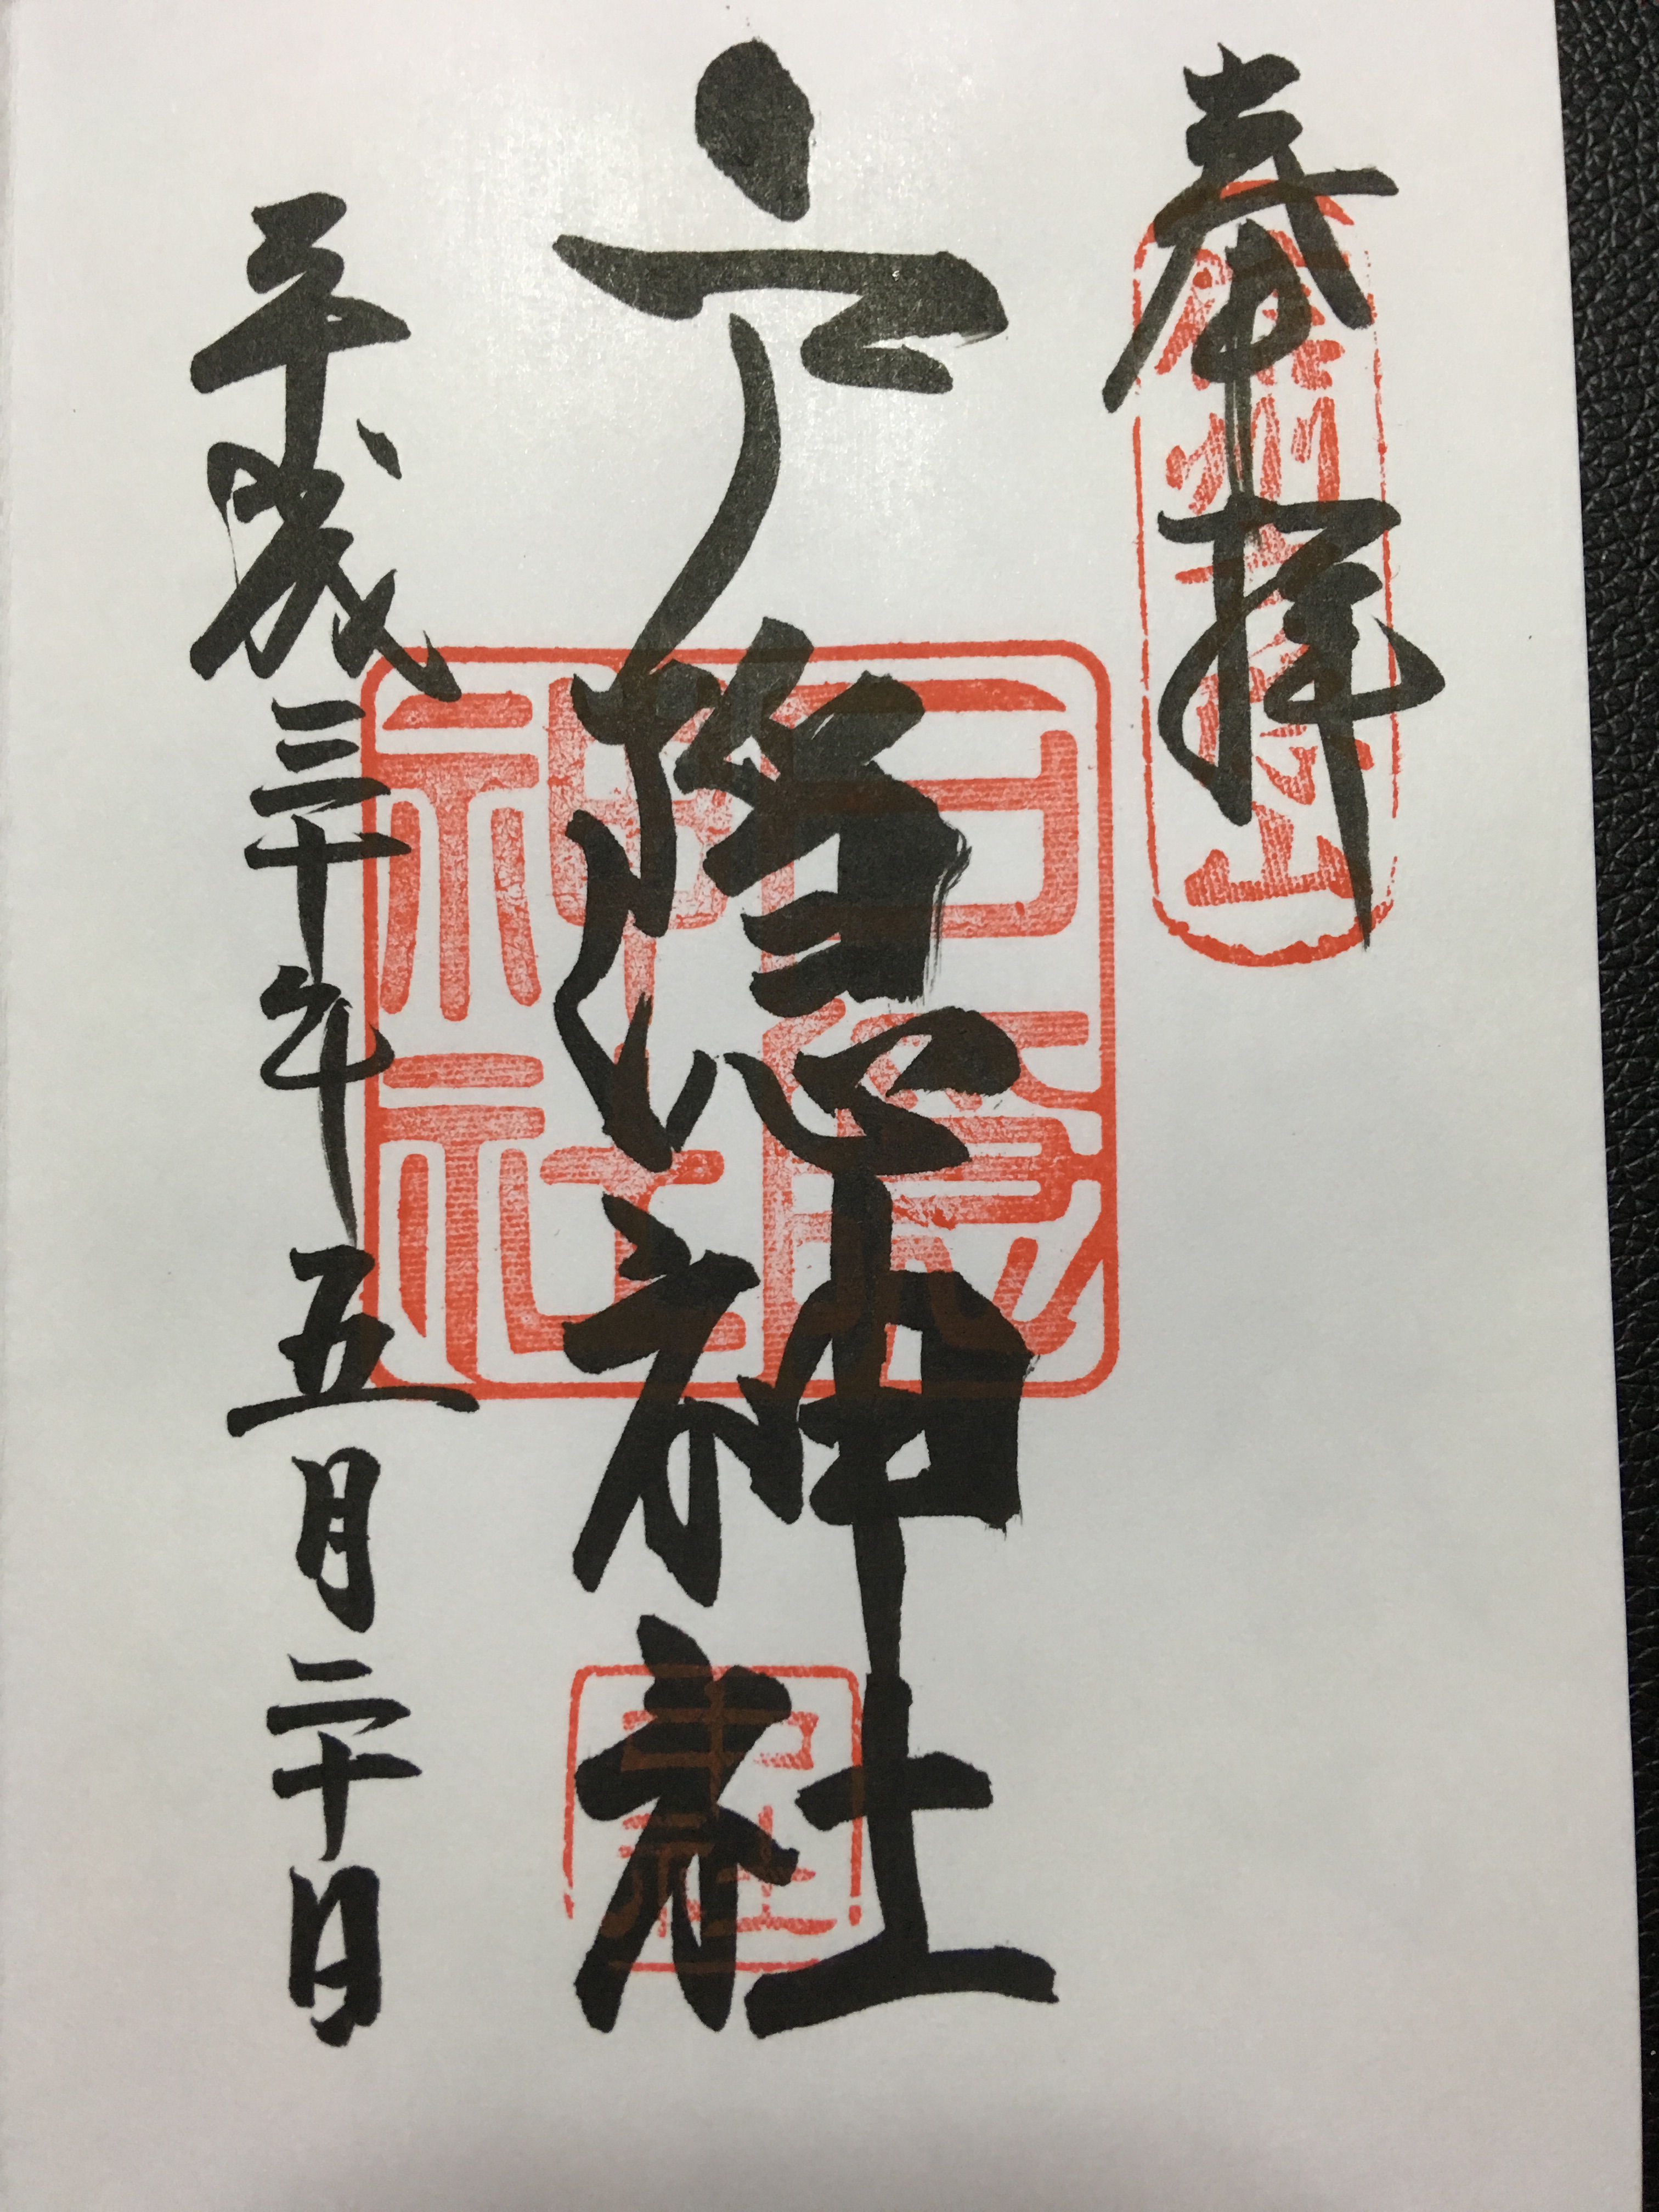 奉拝
信州戸隠山
戸隠神社
戸隠神社
中社
平成三十年五月二十日